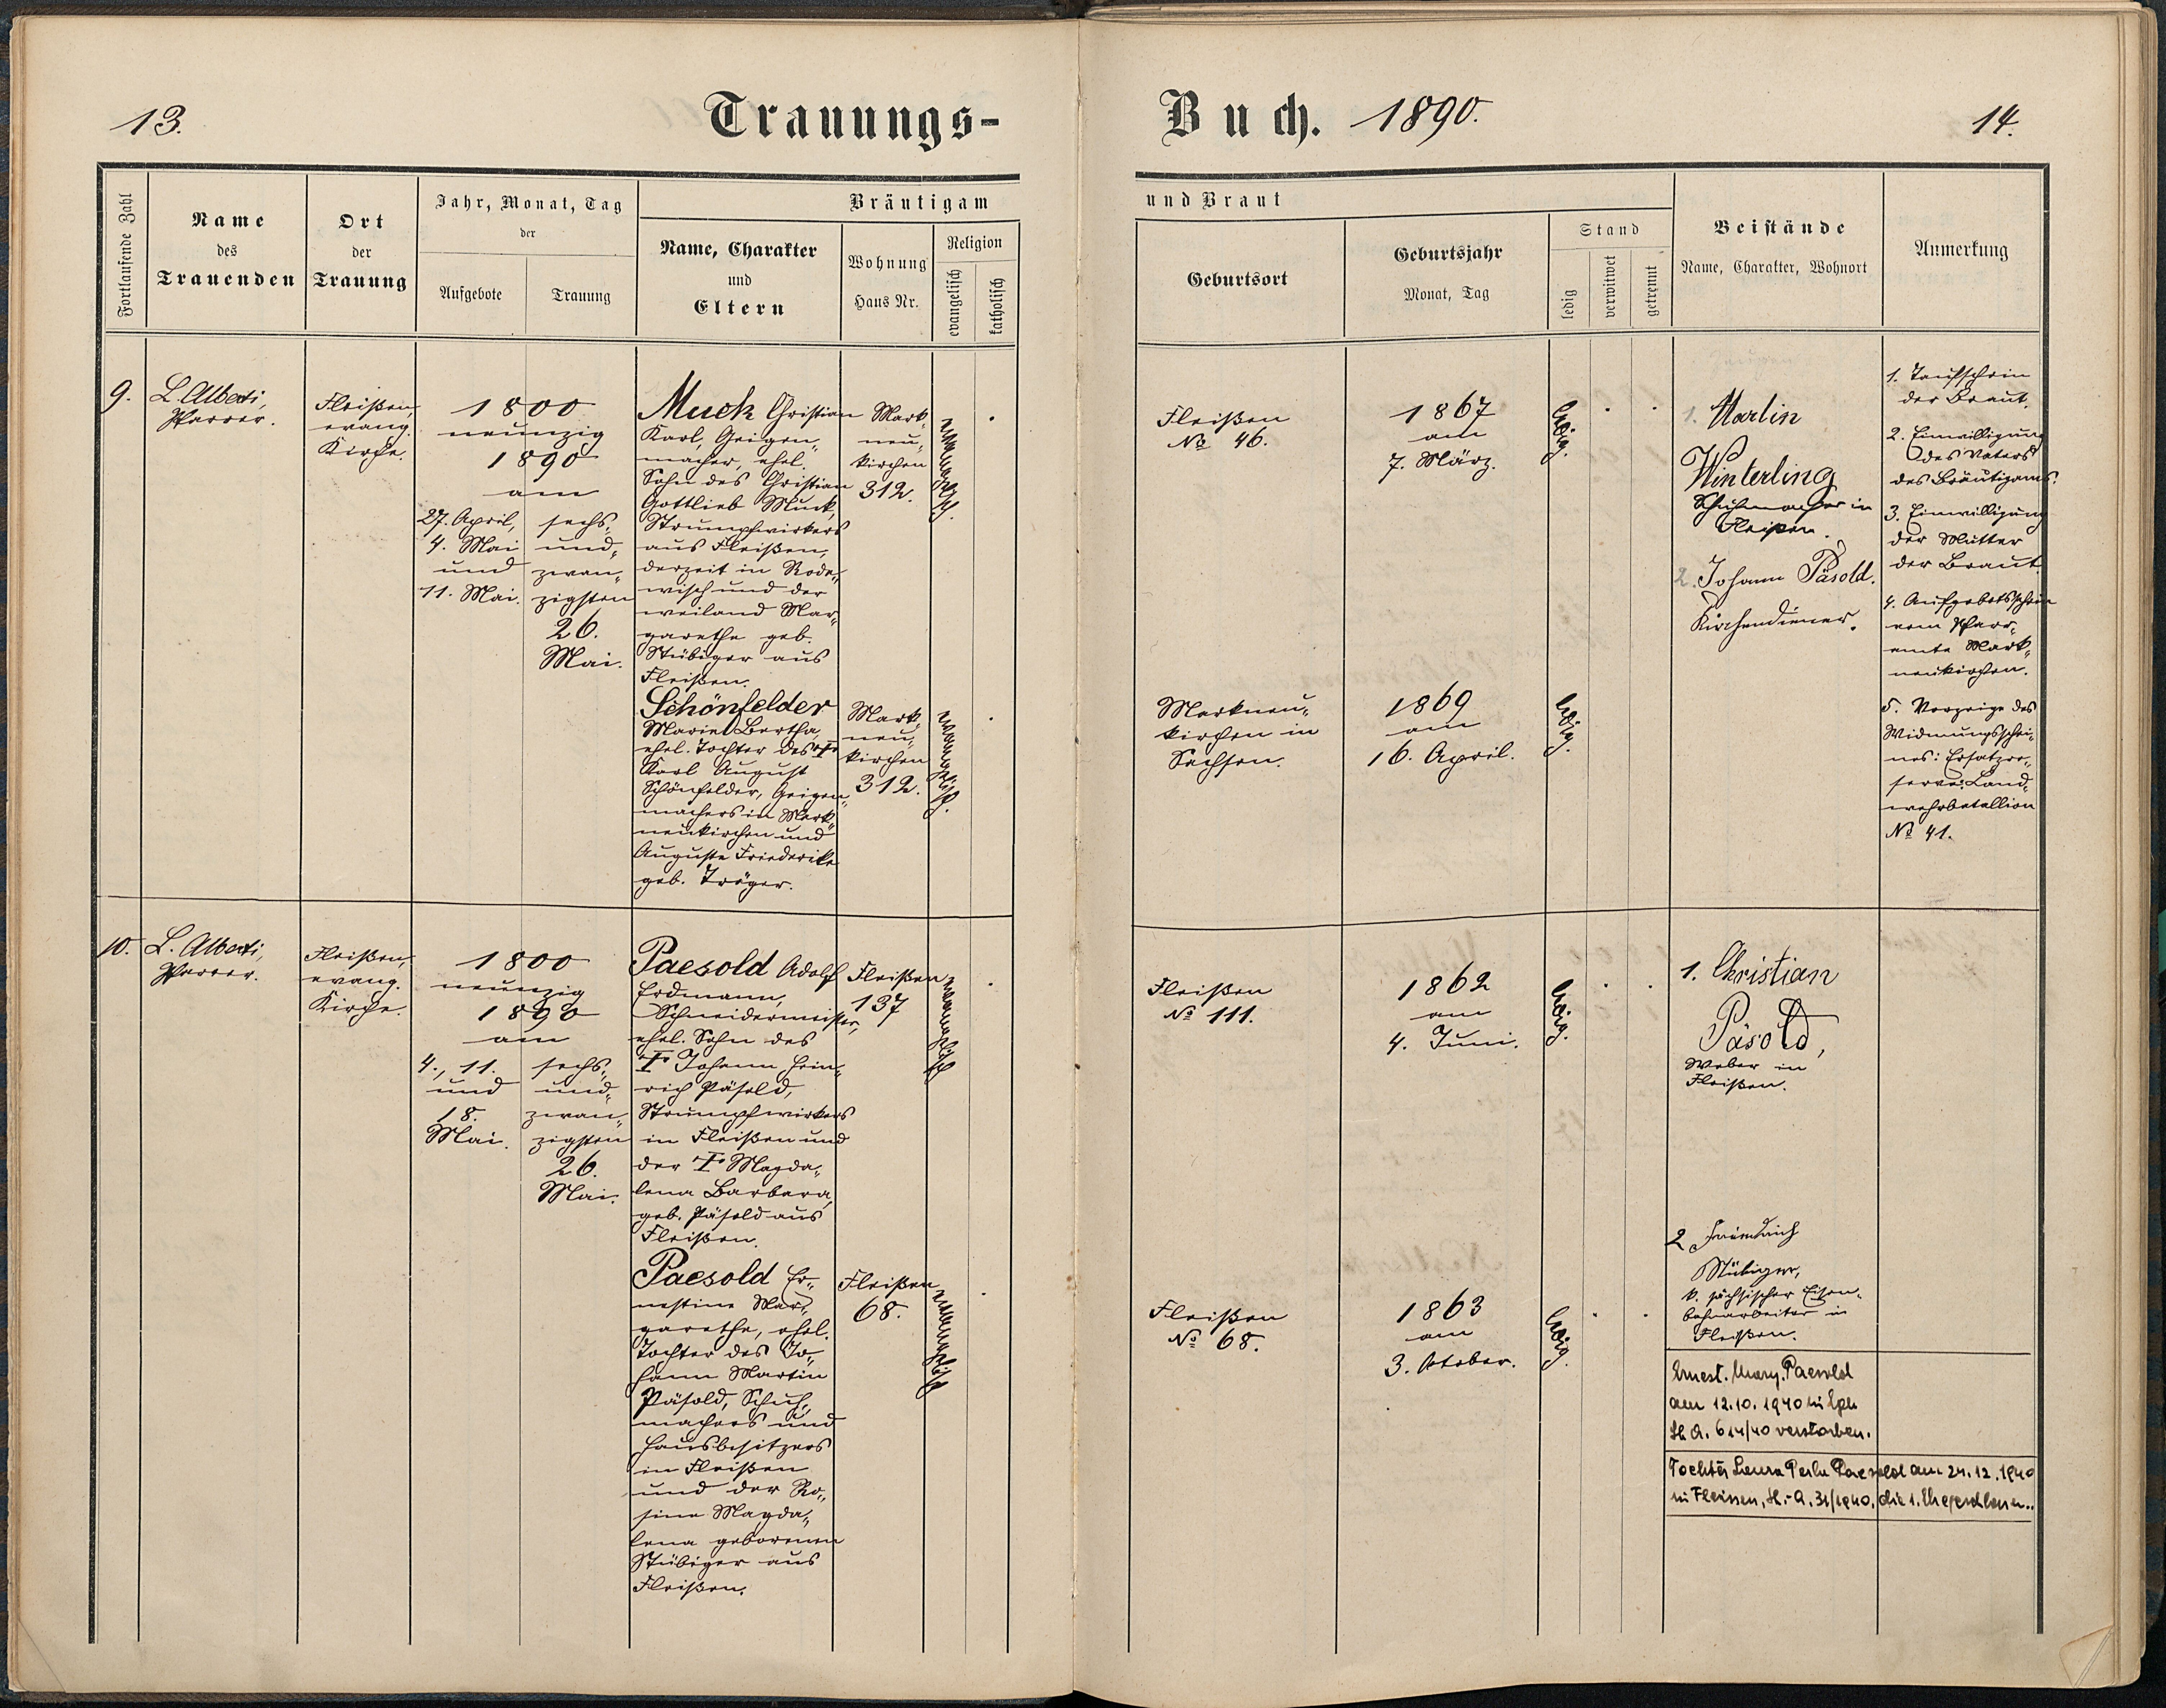 13.
Trauungs-
Buch. 1890.
14.
Fortlaufende Zahl
Name
des
Trauenden
Ort
der
Trauung
Jahr, Monat, Tag
der
Aufgebote
Trauung
Bräutigam
Name, Charakter
und
Eltern
Wohnung
Haus Nr.
Religion
evangelisch
katholisch
und Braut
Geburtsort
Geburtsjahr
Monat, Tag
Stand
ledig
verwitwet
getrennt
Beistände
Name, Charakter, Wohnort
Anmerkung
9.
L. Alberti,
Pfarrer.
Fleißen,
evang.
Kirche.
1800
neunzig
1890
am
27. April,
4. Mai
und
11. Mai.
sechs-
und-
zwan-
zigsten
26.
Mai.
Muck Christian
Karl, Geigen-
macher, ehel.
Sohn des Christian
Gottlieb Muck,
Strumpfwirkers
aus Fleißen,
derzeit in Rode-
wisch und der
weiland Mar-
garethe geb.
Stübiger aus
Fleißen.
Mark-
neu-
kirchen
312.
evangelisch.
Fleißen
№ 46.
1867
am
7. März.
ledig.
1. Martin
Winterling
Schuhmacher in
Fleißen.
2. Johann Päsold.
Kirchendiener.
1. Taufschein
der Braut.
2. Einwilligung
des Vaters
des Bräutigams.
3. Einwilligung
der Mutter
der Braut.
4. Aufgebotsschein
vom Pfarr-
amte Mark-
neukirchen.
5. Vorzeige des
Widmungsschei-
nes: Ersatzre-
serve: Land-
wehrbatallion
№ 41.
Schönfelder
Marie Bertha,
ehel. Tochter des †
Karl August
Schönfelder, Geigen-
machers in Mark-
neukirchen und
Auguste Friederike
geb. Träger.
Mark-
neu-
kirchen
312.
evangelisch.
Markneu-
kirchen in
Sachsen.
1869
am
16. April.
ledig.
10.
L. Alberti,
Pfarrer.
Fleißen,
evang.
Kirche.
1800
neunzig
1890
am
4., 11.
und
18.
Mai.
sechs-
und-
zwan-
zigsten
26.
Mai.
Paesold Adolf
Erdmann,
Schneidermeister,
ehel. Sohn des
† Johann Hein-
rich Päsold,
Strumpfwirkers
in Fleißen und
der † Magda-
lena Barbara,
geb. Päsold aus
Fleißen.
Fleißen
137
evangelisch
Fleißen
№ 111.
1862
am
4. Juni.
ledig.
1. Christian
Päsold,
Weber in
Fleißen.
Paesold Er-
nestine Mar-
garethe, ehel.
Tochter des Jo-
hann Martin
Päsold, Schuh-
machers und
Hausbesitzers
in Fleißen
und der Ro-
sine Magda-
lena geborenen
Stübiger aus
Fleißen.
Fleißen
68.
evangelisch
Fleißen
№ 68.
1863
am
3. Oktober.
ledig.
2 Friedrich
Stübiger,
k. sächsischer Eisen-
bahnarbeiter in
Fleißen.
Ernest. Marg. Paesold
am 12.10.1940 in
St. A. 614/40 verstorben.
Tochter Laura Paesold am 24.12.1940
in Fleissen, St.-A. 31/1940, die 1. Ehe geschlossen.